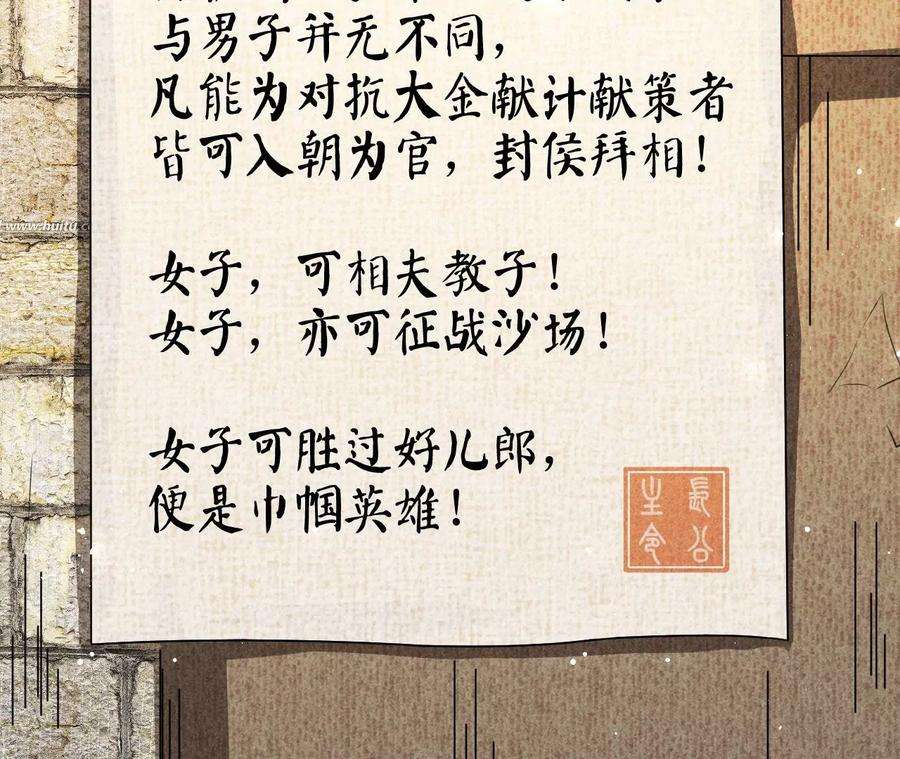 与男子并无不同，
凡能为对抗大金献计献策者
皆可入朝为官，封侯拜相！
女子，可相夫教子！
女子，亦可征战沙场！
女子可胜过好儿郎，
便是巾帼英雄！
長公
主令